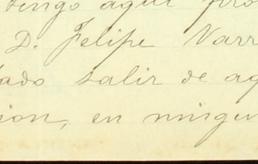 tengo aquí pro
D. Felipe Narr
ado salir de aq
ion, en ningu